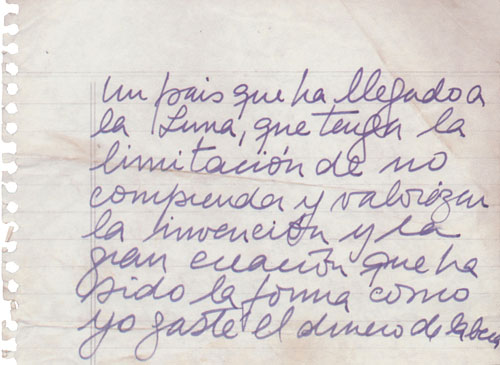 Un pais que ha llegado a
la Luna, que tenga la
limitación de no
comprenda y valorizar
la invención y la
gran creación que ha
sido la forma como
yo gasté el dinero de la beca